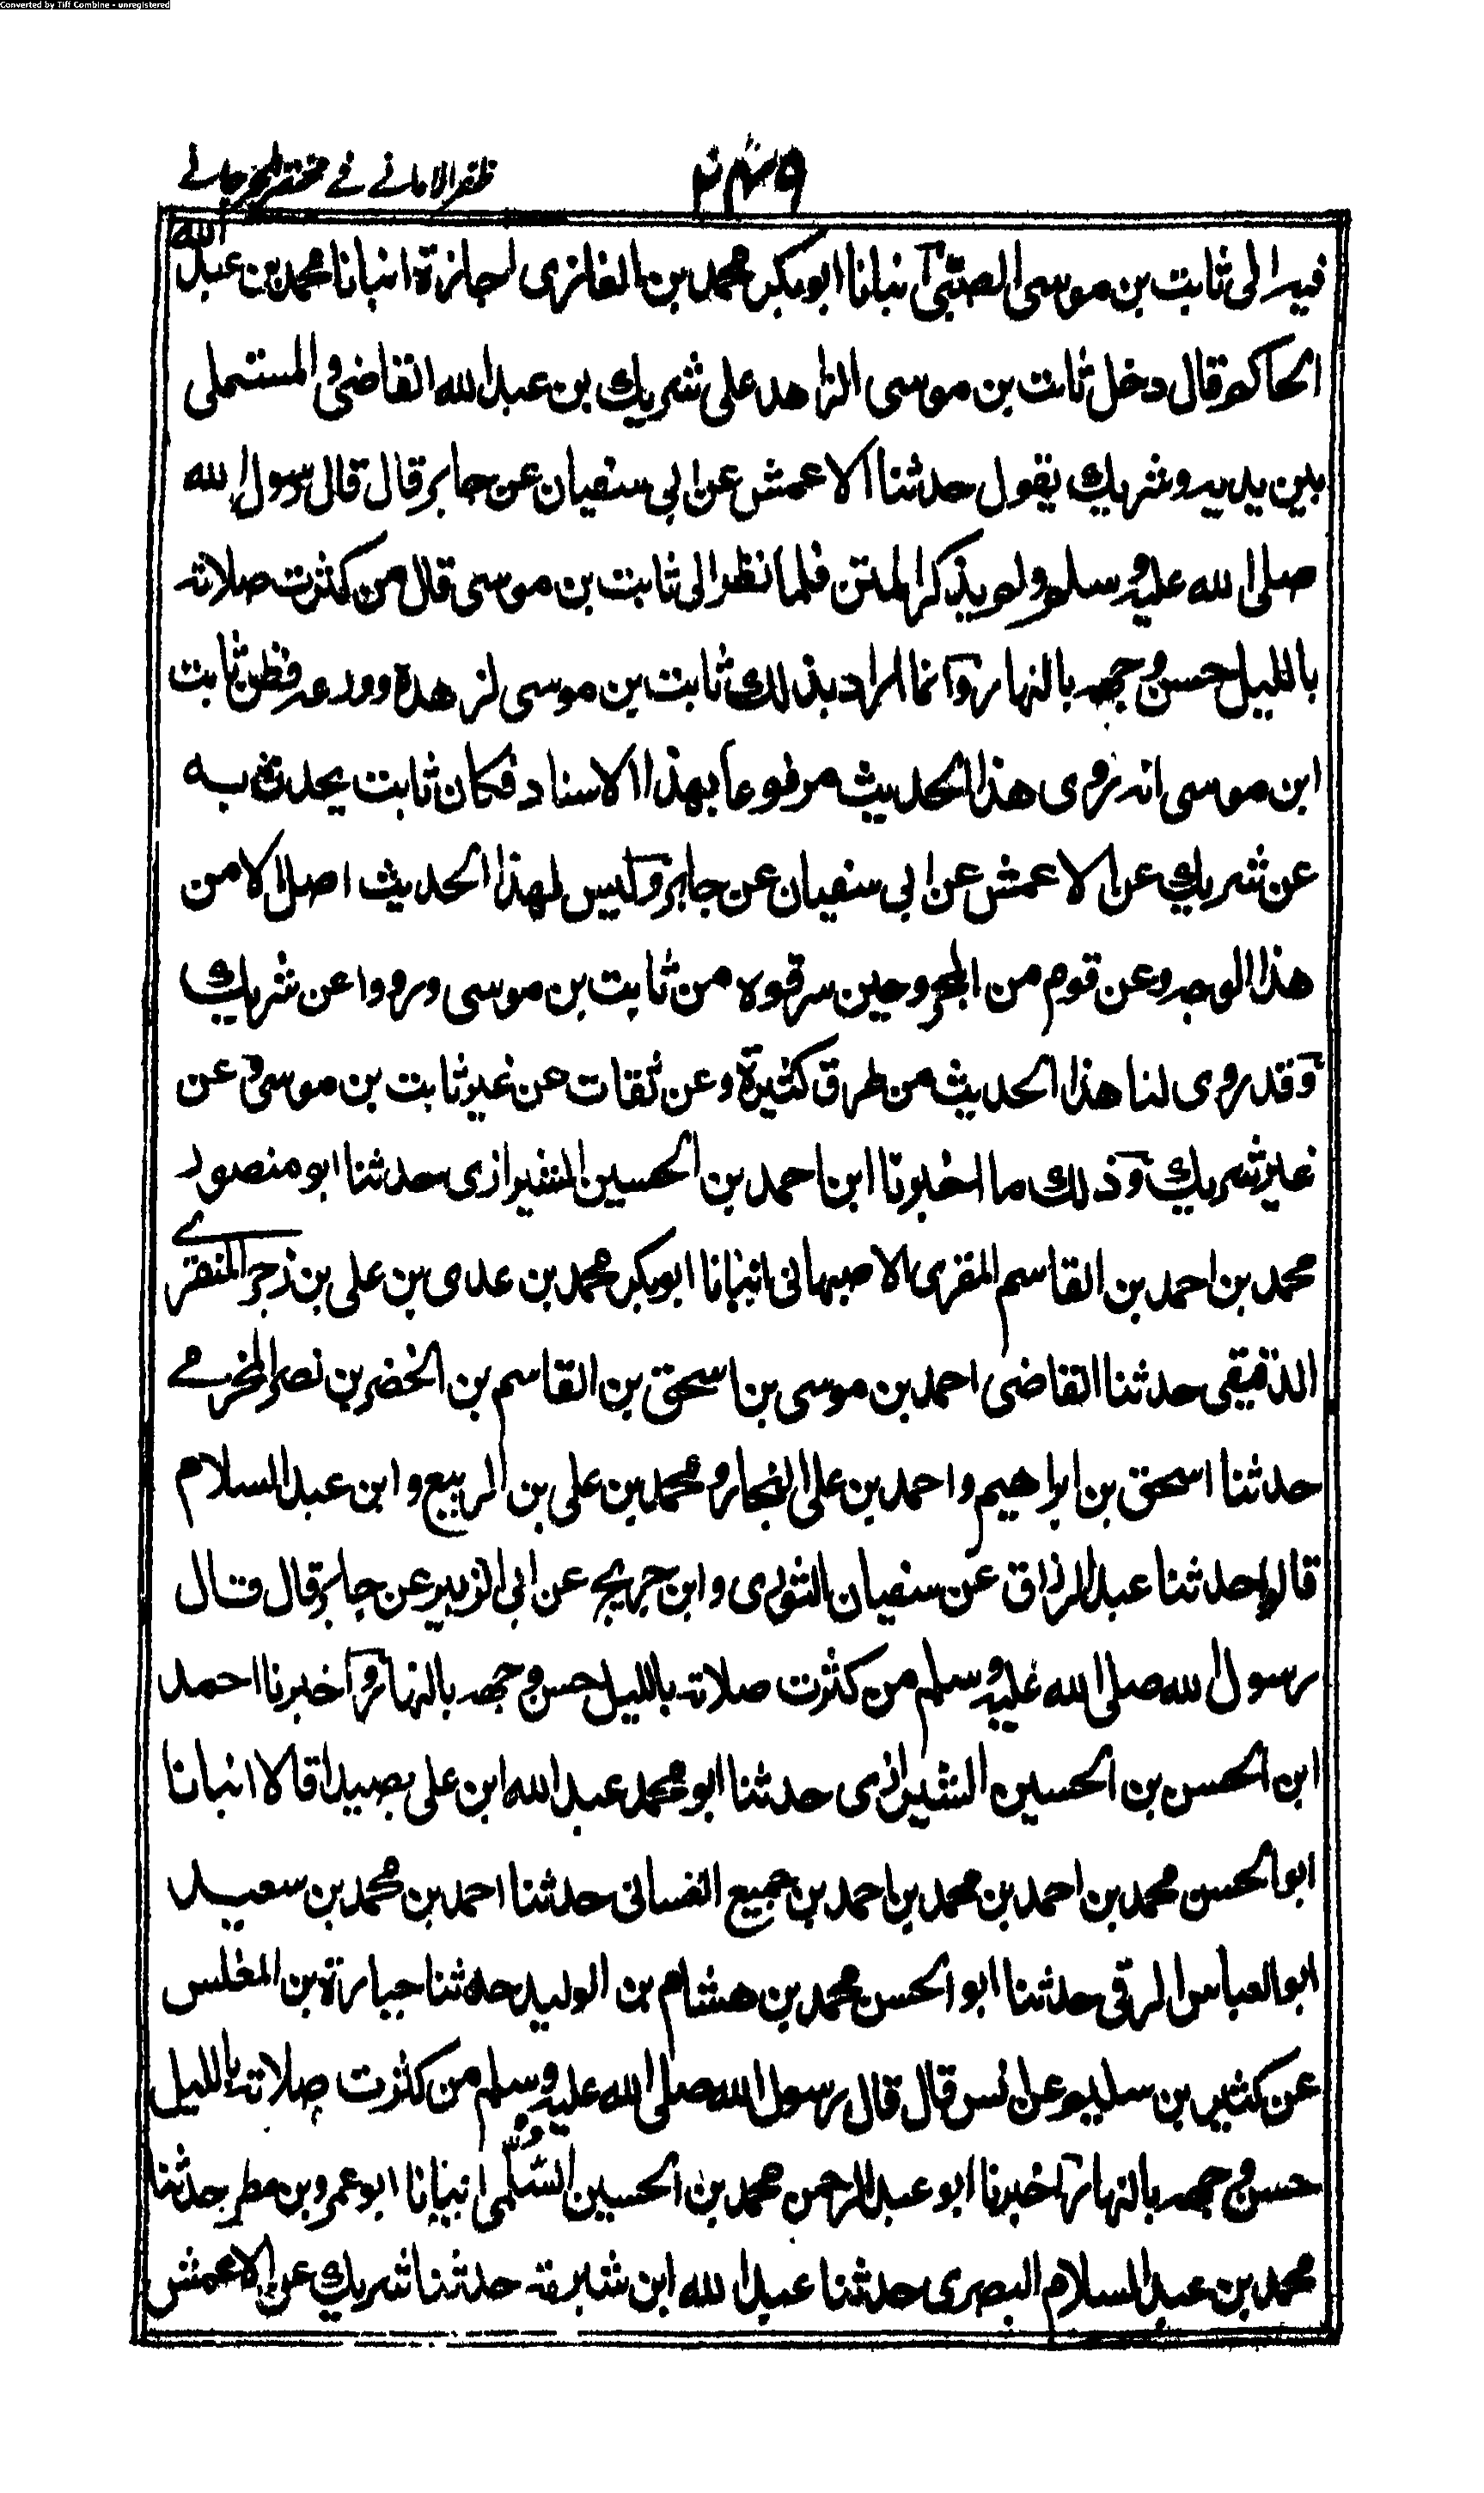 Converted by Tiff Combine - unregistered
۲۴۹ ظفر الامانے فے مختصر الجرجانے
فیہ الی ثابت بن موسی الضبی آنبانا ابوبکر محمد بن الغازی اجازة انبانا محمد بن عبد الله
الحاکم قال دخل ثابت بن موسی الزاهد علی شریك بن عبد الله القاضی و المستملی
بین یدیہ وشریك یقول حدثنا الاعمش عن ابی سفیان عن جابر قال قال رسول الله
صلی الله علیہ وسلم ولم یذکر المتن فلما نظر الی ثابت بن موسی قال من کثرت صلاتہ
باللیل حسن وجهہ بالنهار وانما اراد بذلك ثابت بن موسی لزهدہ وورعہ فظن ثابت
ابن موسی انہ روی هذا الحدیث مرفوعا بهذا الاسناد فکان ثابت یحدث بہ
عن شریك عن الاعمش عن ابی سفیان عن جابر ولیس لهذا الحدیث اصل الا من
هذا الوجہ وعن قوم من المجروحین سرقوہ من ثابت بن موسی ورووا عن شریك
وقد روی لنا هذا الحدیث من طرق کثیرة وعن ثقات عن غیر ثابت بن موسی و عن
غیر شریك وذلك ما اخبرنا ابن احمد بن الحسین الشیرازی حدثنا ابو منصور
محمد بن احمد بن القاسم المقری الاصبهانی انبانا ابوبکر محمد بن عدی بن علی بن زجر المنقرے
الدقیقی حدثنا القاضی احمد بن موسی بن اسحق بن القاسم بن الخضر بن نصر المخرمے
حدثنا اسحق بن ابراهیم و احمد بن علی النجار و محمد بن علی بن الربیع و ابن عبد السلام
قالوا حدثنا عبد الرزاق عن سفیان الثوری و ابن جریج عن ابی الزبیر عن جابر قال قال
رسول الله صلی الله علیہ وسلم من کثرت صلاتہ باللیل حسن وجهہ بالنهار و اخبرنا احمد
ابن الحسن بن الحسین الشیرازی حدثنا ابو محمد عبد الله ابن علی بصیدا قالا انبانا
ابو الحسن محمد بن احمد بن محمد بن احمد بن جمیع الغسانی حدثنا احمد بن محمد بن سعید
ابو العباس الرقی حدثنا ابو الحسن محمد بن هشام بن الولید حدثنا جبارة بن المغلس
عن کثیر بن سلیم عن انس قال قال رسول الله صلی الله علیہ وسلم من کثرت صلاتہ باللیل
حسن وجهہ بالنهار اخبرنا ابو عبد الرحمن محمد بن الحسین السُّلَمی انبانا ابو عمرو بن مطر حدثنا
محمد بن عبد السلام البصری حدثنا عبد الله ابن شبرمة حدثنا شریك عن الاعمش